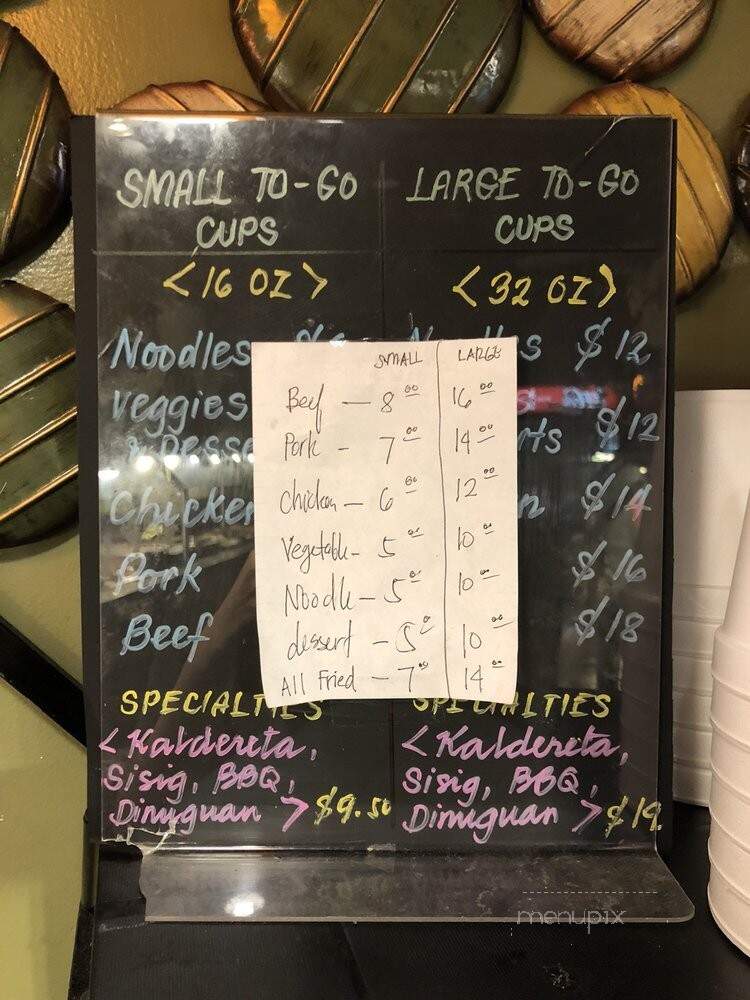 SMALL TO-GO
CUPS
<16 OZ>
Noodles
Veggies
& Desse
Chicken
Pork
Beef
SPECIALTIES
<Kaldereta,
Sisig, BBQ,
Dinuguan> $9.50
LARGE TO-GO
CUPS
<32 OZ>
s $12
rts $12
n $14
$16
$18
SPECIALTIES
<Kaldereta,
Sisig, BBQ,
Dinuguan> $19.
SMALL LARGE
Beef — 8 00 16 00
Pork - 7 00 14 00
Chicken — 6 00 12 00
Vegetable - 5 00 10 00
Noodle — 5 00 10 00
dessert — 5 10 00
All Fried — 7 00 14 00
menupix